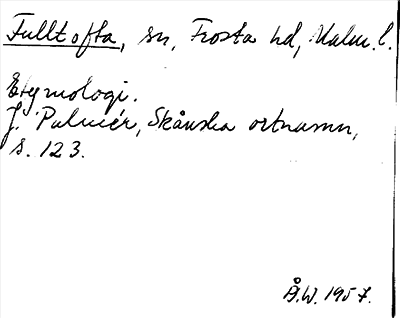 Fulltofta, sn, Frosta hd, Malm. l.
Etymologi.
J. Palmér, Skånska ortnamn,
s. 123.
Å.W. 1957.